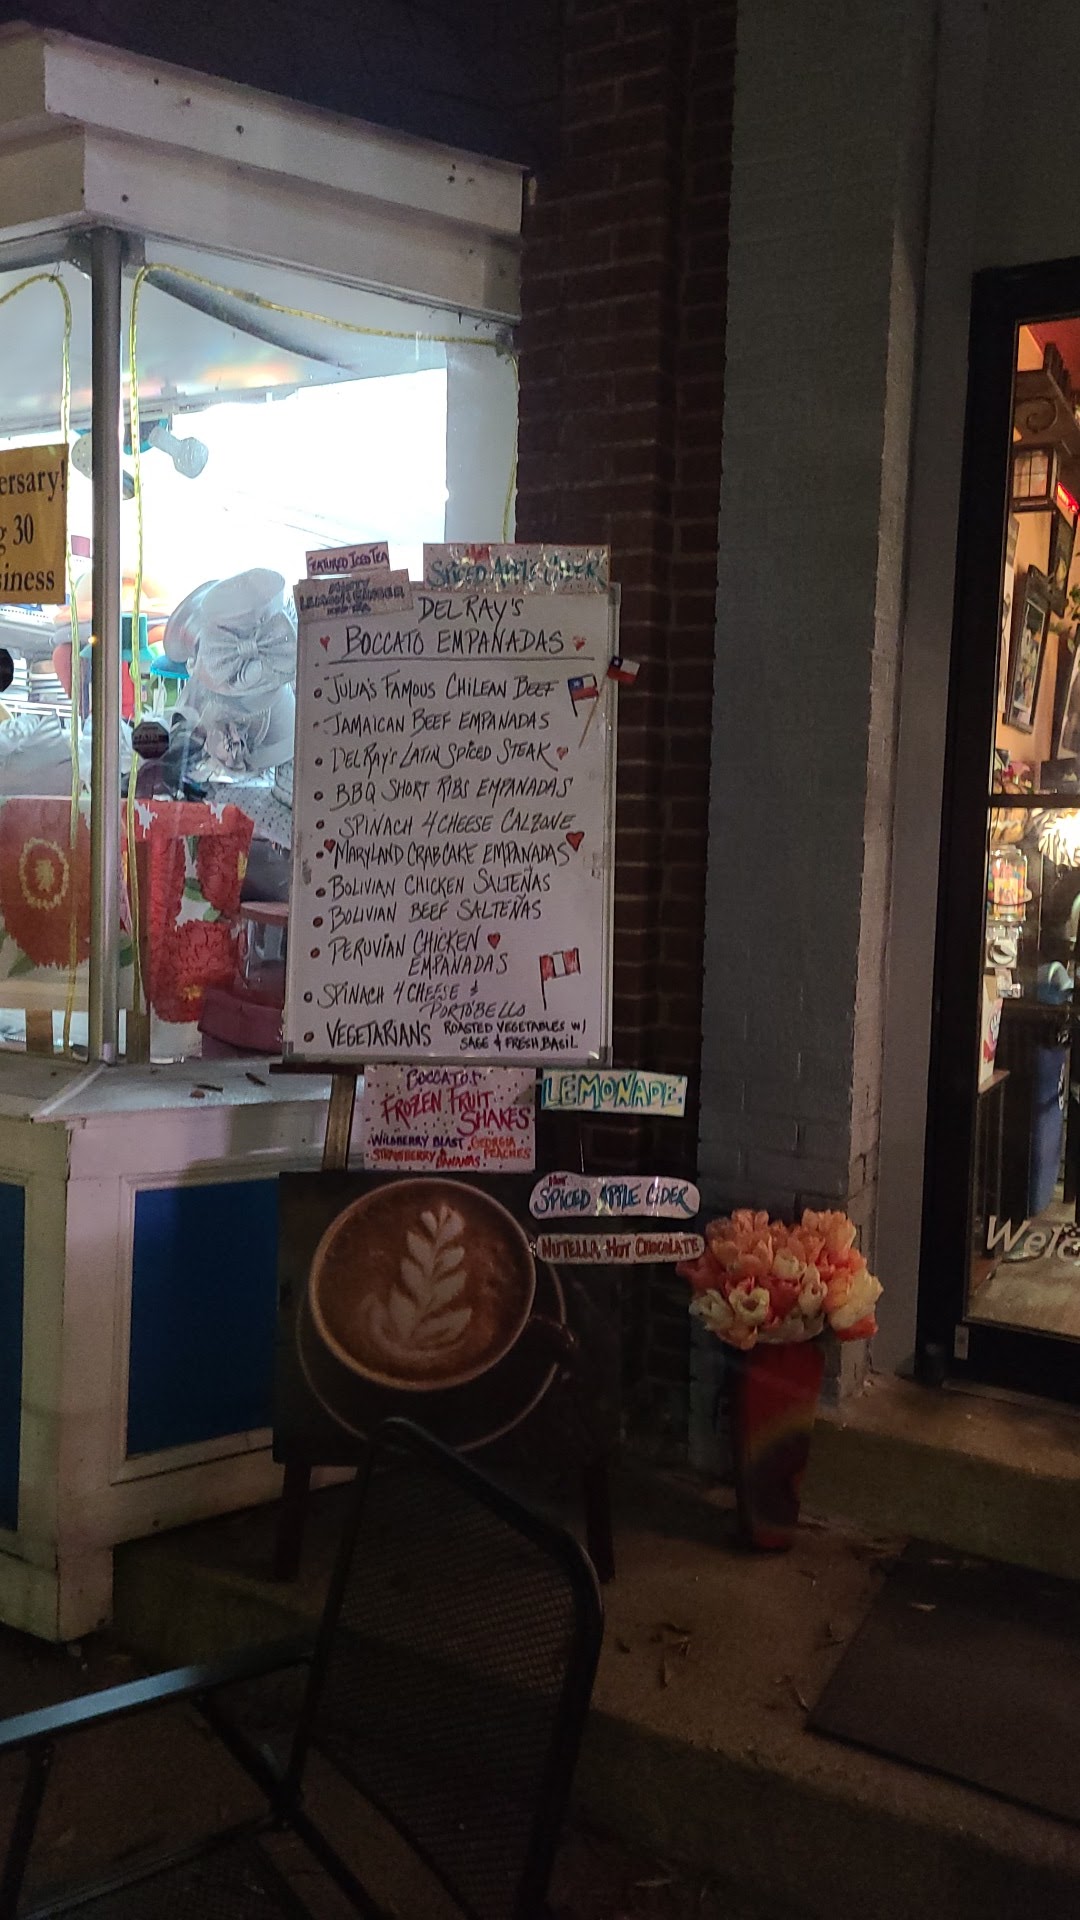 ersary!
g 30
siness
FEATURED ICED TEA
HOT
SPICED APPLE CIDER
DELRAY'S
BOCCATO EMPANADAS
JULIA'S FAMOUS CHILEAN BEEF
JAMAICAN BEEF EMPANADAS
DELRAY'S LATIN SPICED STEAK
BBQ SHORT RIBS EMPANADAS
SPINACH 4 CHEESE CALZONE
MARYLAND CRABCAKE EMPANADAS
BOLIVIAN CHICKEN SALTEÑAS
BOLIVIAN BEEF SALTEÑAS
PERUVIAN CHICKEN
EMPANADAS
SPINACH 4 CHEESE &
PORTOBELLO
VEGETARIANS ROASTED VEGETABLES W/
SAGE & FRESH BASIL
BOCCATO'S
FROZEN FRUIT
SHAKES
WILDBERRY BLAST GEORGIA
PEACHES
STRAWBERRY &
BANANAS
LEMONADE
HOT
SPICED APPLE CIDER
NUTELLA HOT CHOCOLATE
Welc